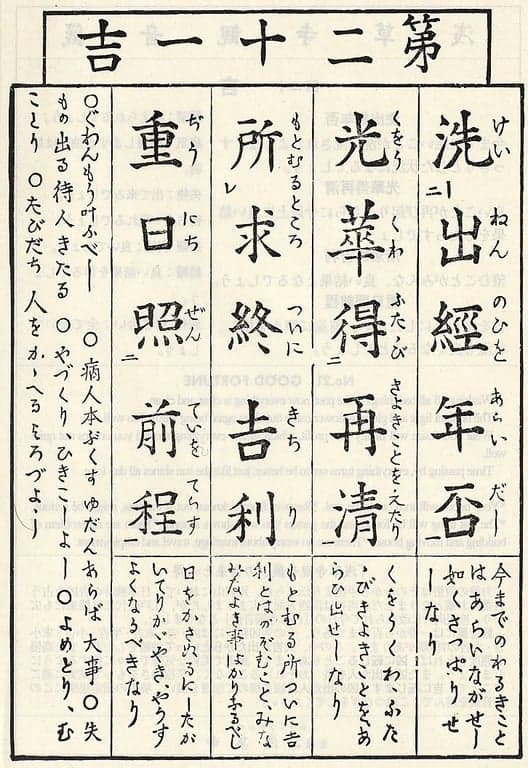 第二十一吉
洗出經年否
けい ねん のひを あらい だ
今までのわるきこと
はあらいながせし
如くさばりしせ
しなり
光華得再清
くをう くわ ふたゝび きよきことをえたり
くをうくわふた
ゝびきよきことをあ
らひ出せしなり
所求終吉利
もとむるところ つひに きち り
もとむる所ついに吉
利とはのぞむことみな
みなよき事ばかりあるべし
重日照前程
ぢう にち ぜん ていをてらす
日をかさぬるにしたが
いてりかゞやき
よくなるべきなり
○ぐわんもう叶ふべし ○病人本ぶくすゆだんあらば大事○失
もの出る待人きたる ○やづくりひきこしよし ○よめとり、む
ことり ○たびだち 人をかゝへるよろづよし